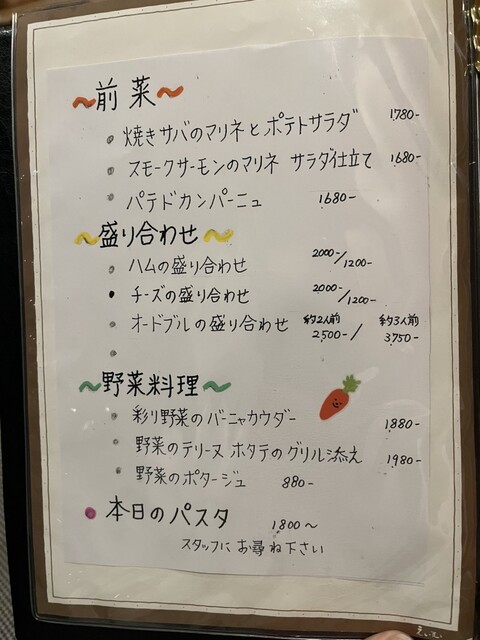 ~前菜~
焼きサバのマリネとポテトサラダ 1780-
スモークサーモンのマリネ サラダ仕立て 1680-
パテドカンパーニュ 1680-
~盛り合わせ~
ハムの盛り合わせ 2000-/1200-
チーズの盛り合わせ 2000-/1200-
オードブルの盛り合わせ 約2人前 2,500-/ 約3人前 3,750-
~野菜料理~
彩り野菜のバーニャカウダー 1,880-
野菜のテリーヌ ホタテのグリル添え 1980-
野菜のポタージュ 880-
本日のパスタ 1,800~
スタッフにお尋ね下さい